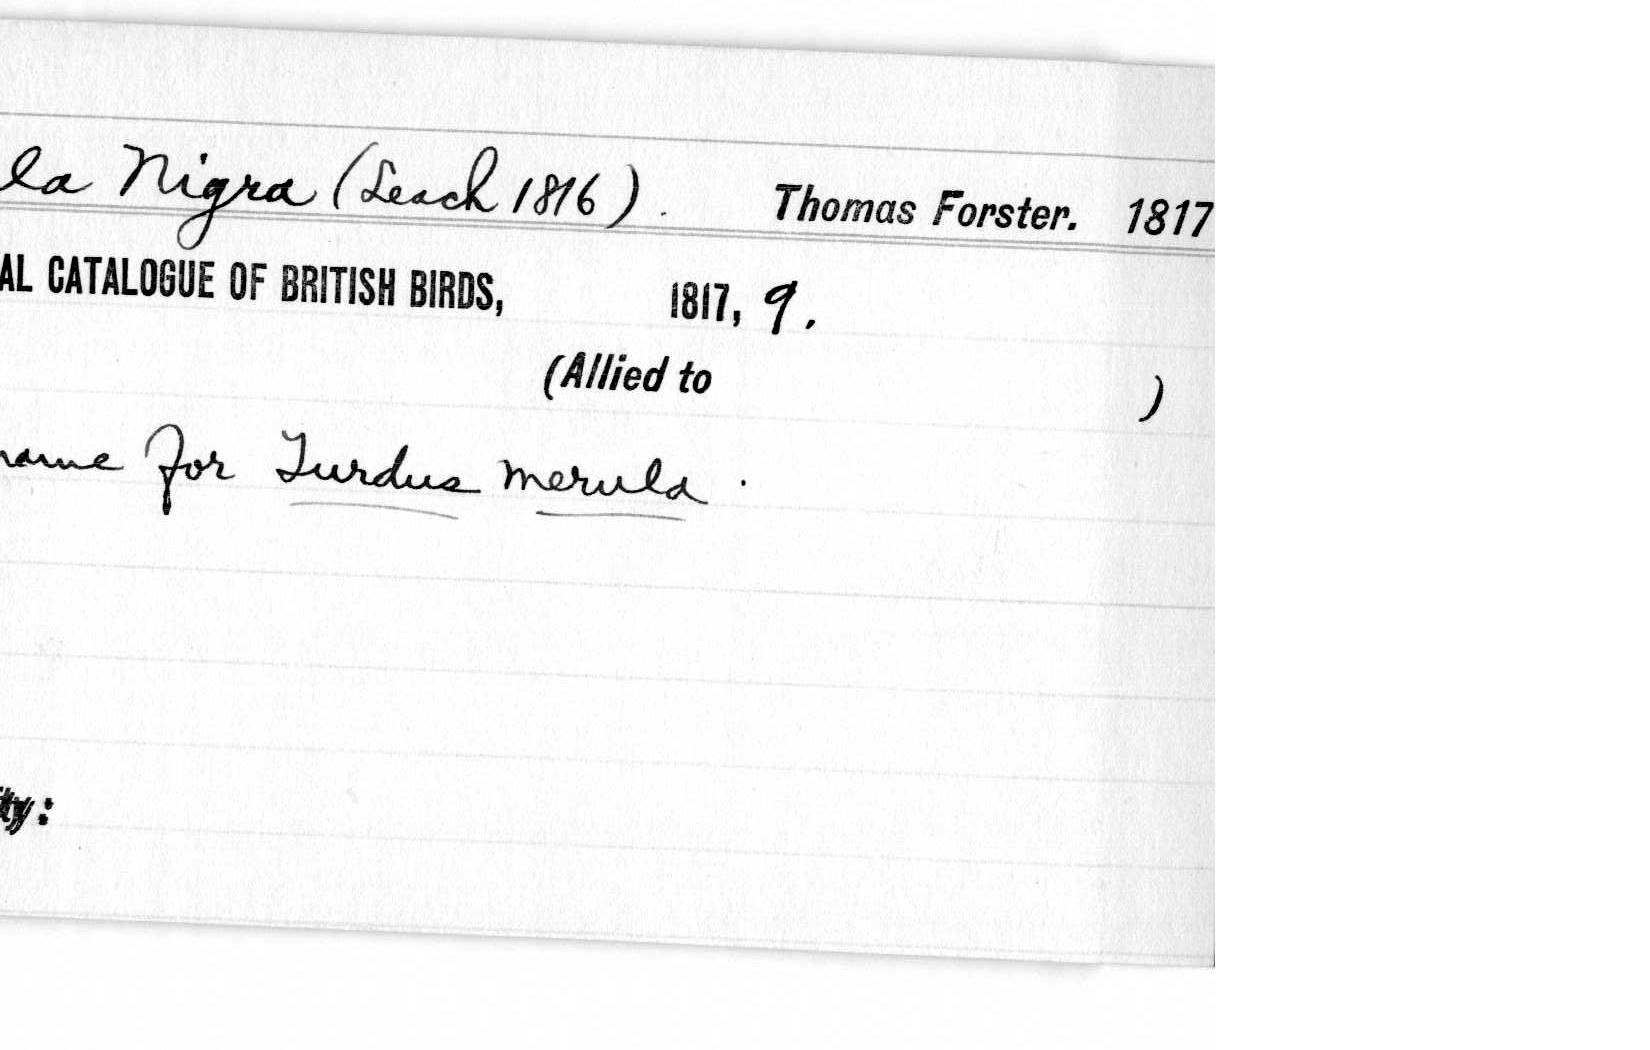 la Nigra (Leach 1816). Thomas Forster. 1817
AL CATALOGUE OF BRITISH BIRDS, 1817, 9.
(Allied to )
name for Turdus merula.
ty: